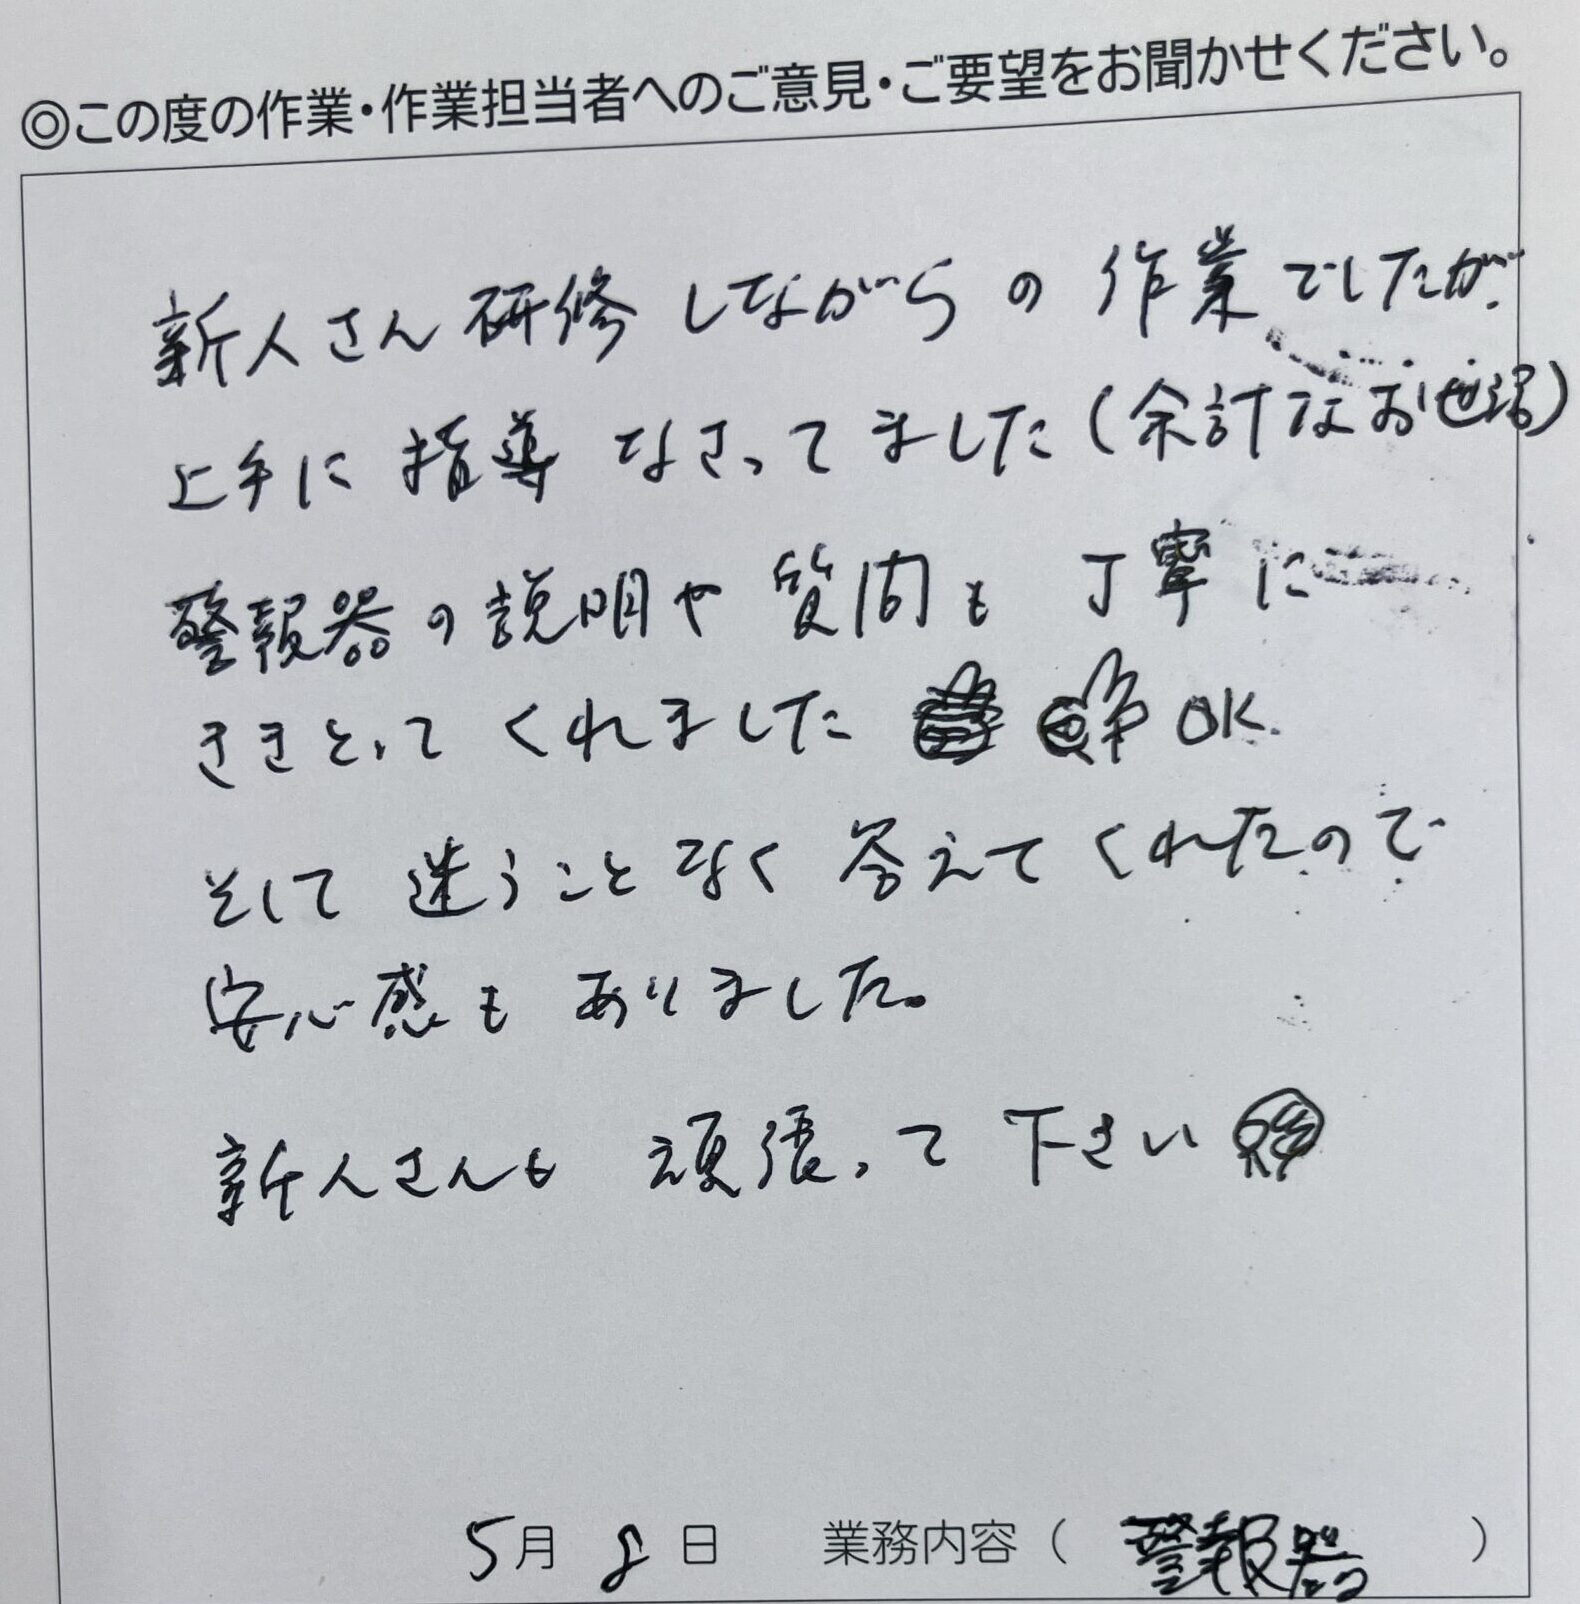 ◎この度の作業・作業担当者へのご意見・ご要望をお聞かせください。
新人さん研修しながらの作業でしたが、
上手に指導なさってました(余計なお世話)
警報器の説明や質問も丁寧に
ききとってくれました OK
そして迷うことなく答えてくれたので
安心感もありました。
新人さんも頑張って下さい
5月8日 業務内容(警報器)